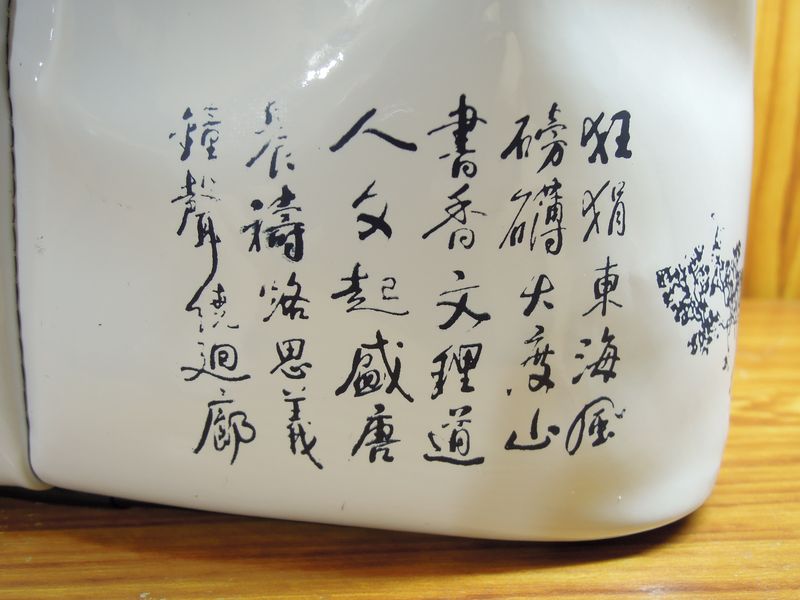 狂狷東海風
磅礴大度山
書香文理道
人文起盛唐
晨禱路思義
鐘聲繞迴廊